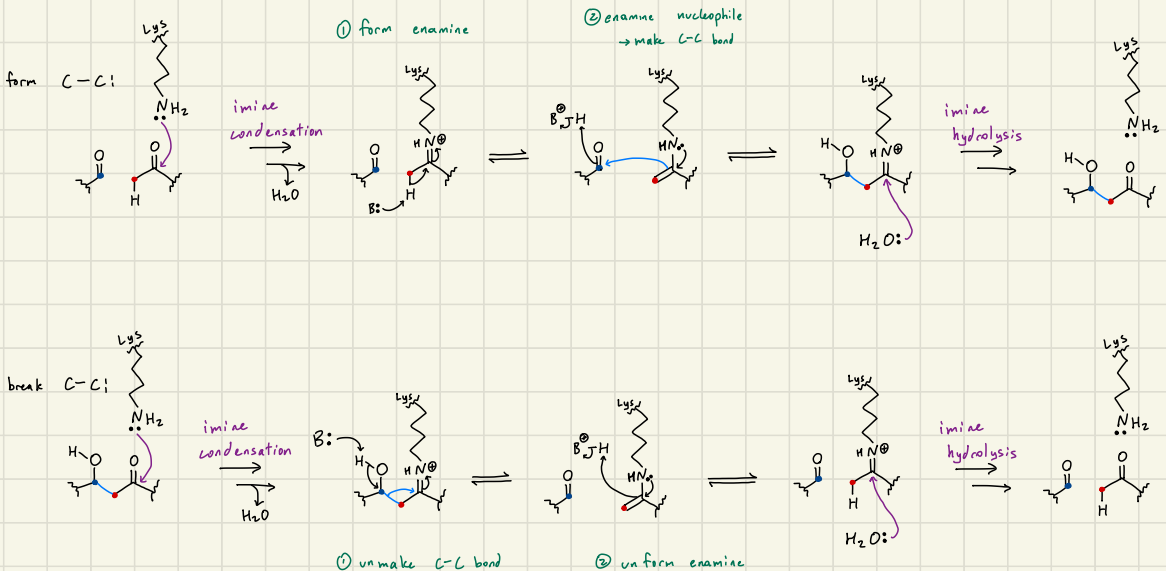 ① form enamine
② enamine nucleophile
→ make C-C bond
form C-C:
Lys
NH2
O
O
H
imine
condensation
H2O
Lys
HN⊕
O
H
B:
B⊕ H
Lys
HN:
O
Lys
H O HN⊕
H2O:
imine
hydrolysis
Lys
NH2
H O O
break C-C:
Lys
NH2
H O O
imine
condensation
H2O
B:
Lys
H O HN⊕
B⊕ H
Lys
HN:
O
Lys
HN⊕
O
H
H2O:
imine
hydrolysis
Lys
NH2
O O
H
① unmake C-C bond
② unform enamine